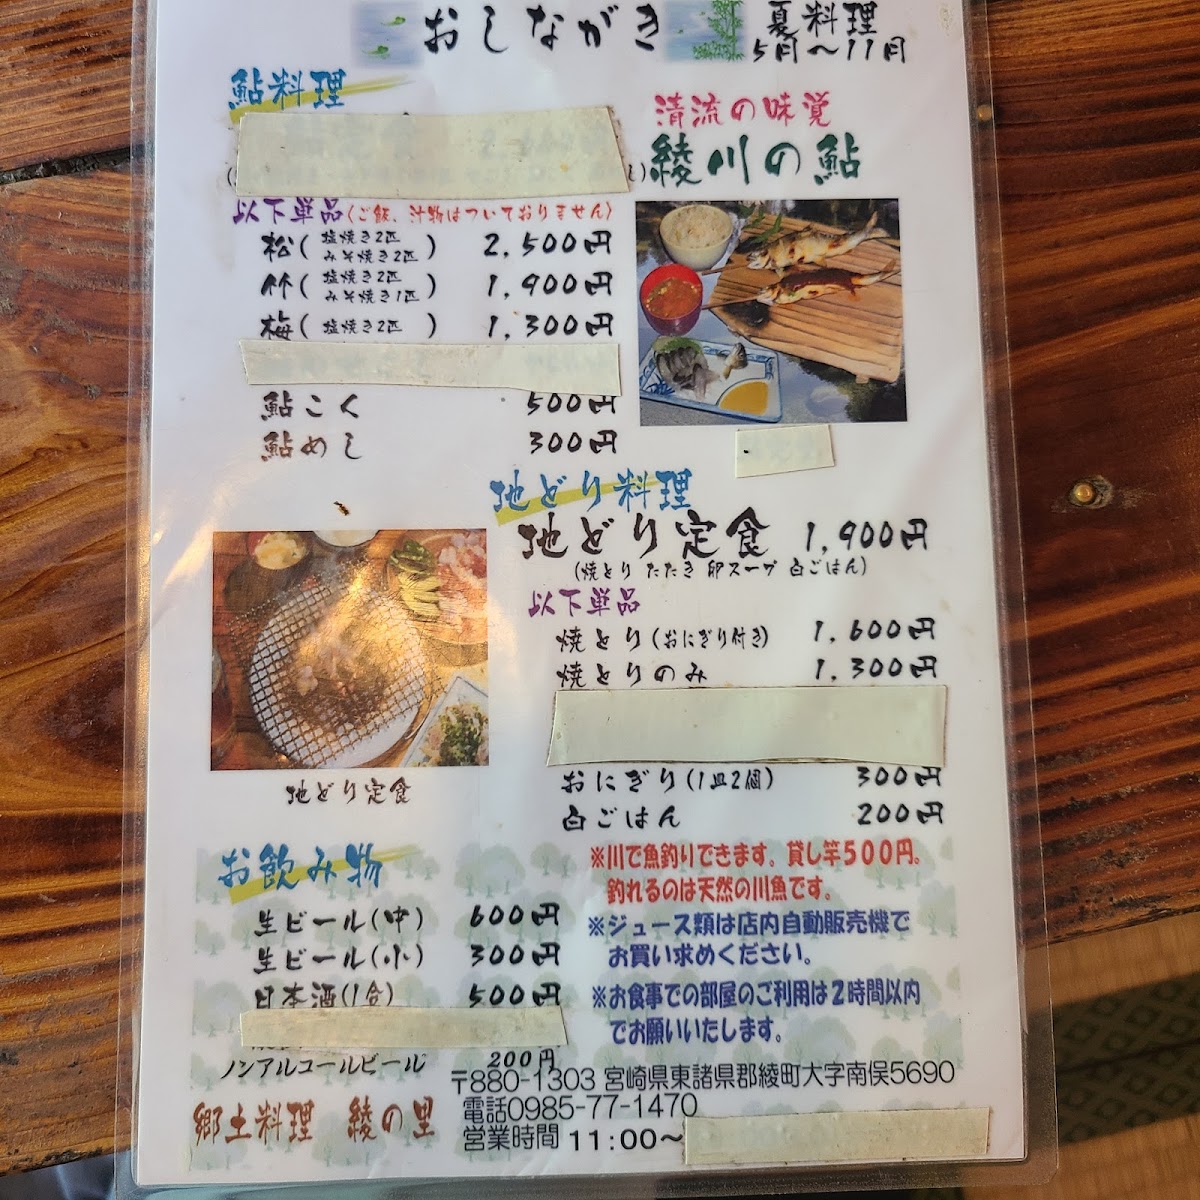 おしながき
夏料理
5月～11月
鮎料理
清流の味覚
綾川の鮎
以下単品(ご飯、汁物はついておりません)
松( 塩焼き2匹 みそ焼き2匹 ) 2,500円
竹( 塩焼き2匹 みそ焼き1匹 ) 1,900円
梅( 塩焼き2匹 ) 1,300円
鮎こく 500円
鮎めし 300円
地どり料理
地どり定食 1,900円
(焼とり たたき 卵スープ 白ごはん)
以下単品
焼とり(おにぎり付き) 1,600円
焼とりのみ 1,300円
おにぎり(1皿2個) 300円
白ごはん 200円
地どり定食
お飲み物
生ビール(中) 600円
生ビール(小) 300円
日本酒(1合) 500円
ノンアルコールビール 200円
※川で魚釣りできます。貸し竿500円。
釣れるのは天然の川魚です。
※ジュース類は店内自動販売機で
お買い求めください。
※お食事での部屋のご利用は2時間以内
でお願いいたします。
〒880-1303 宮崎県東諸県郡綾町大字南俣5690
電話0985-77-1470
営業時間 11:00～
郷土料理 綾の里